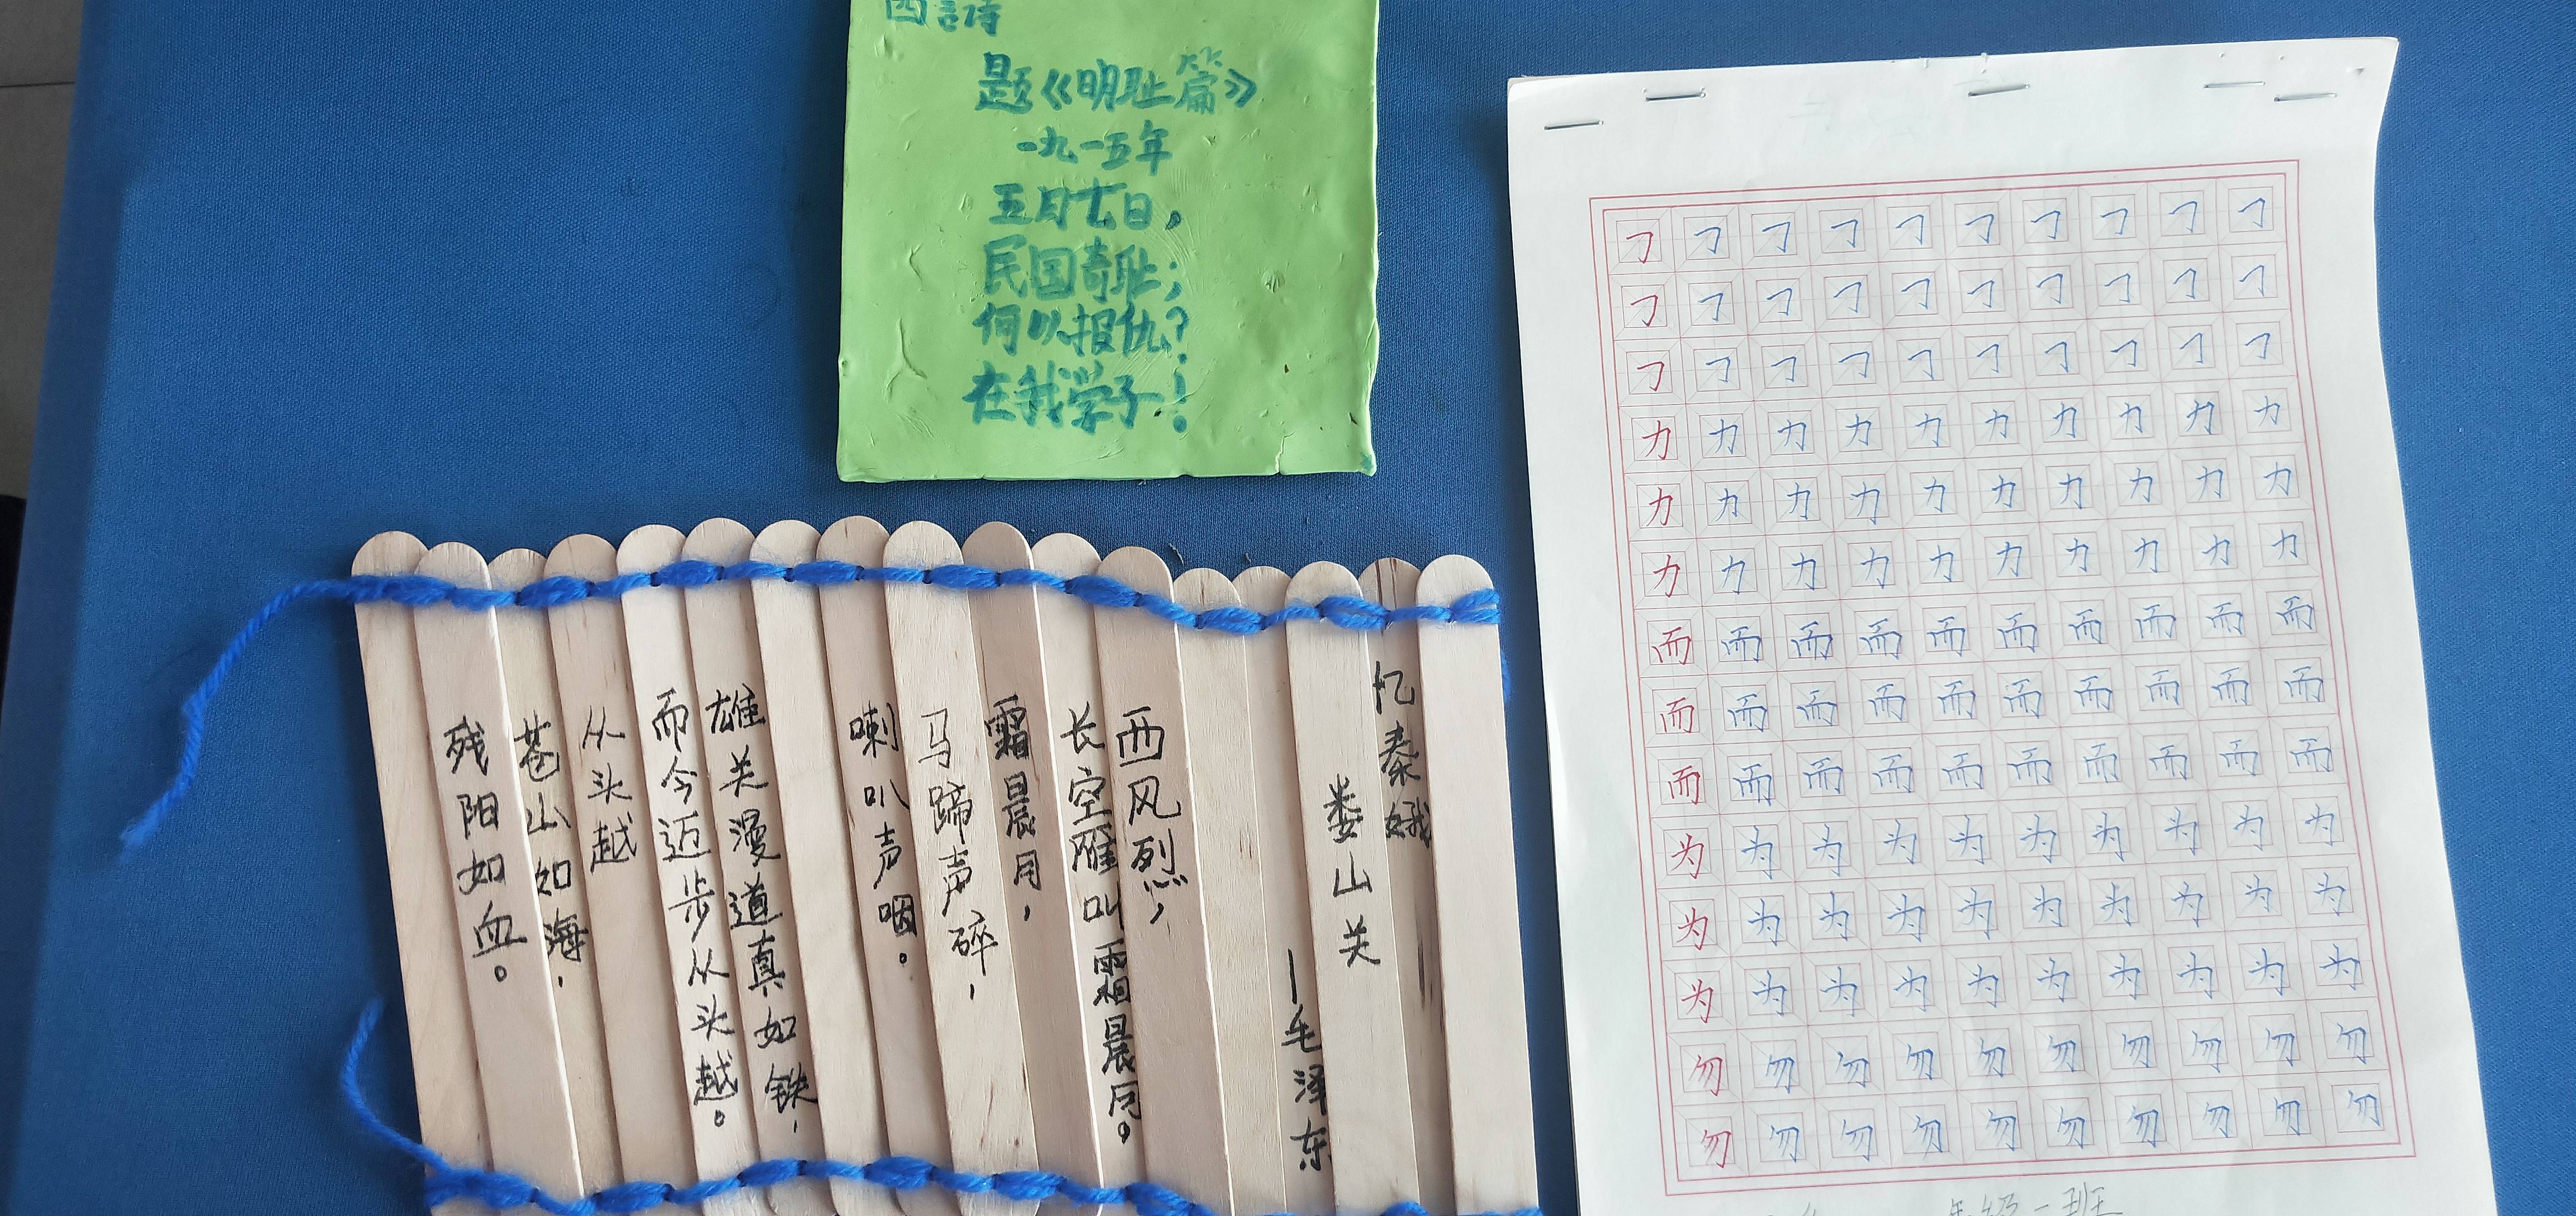 四言诗
题《明耻篇》
一九一五年
五月七日，
民国奇耻；
何以报仇？
在我学子！
忆秦娥
娄山关
—毛泽东
西风烈，
长空雁叫霜晨月。
霜晨月，
马蹄声碎，
喇叭声咽。
雄关漫道真如铁，
而今迈步从头越。
从头越
苍山如海，
残阳如血。
㇆㇆㇆㇆㇆㇆㇆㇆㇆㇆
㇆㇆㇆㇆㇆㇆㇆㇆㇆㇆
㇆㇆㇆㇆㇆㇆㇆㇆㇆㇆
力力力力力力力力力力
力力力力力力力力力力
力力力力力力力力力力
而而而而而而而而而而
而而而而而而而而而而
而而而而而而而而而而
为为为为为为为为为为
为为为为为为为为为为
为为为为为为为为为为
勿勿勿勿勿勿勿勿勿勿
勿勿勿勿勿勿勿勿勿勿
年级一班